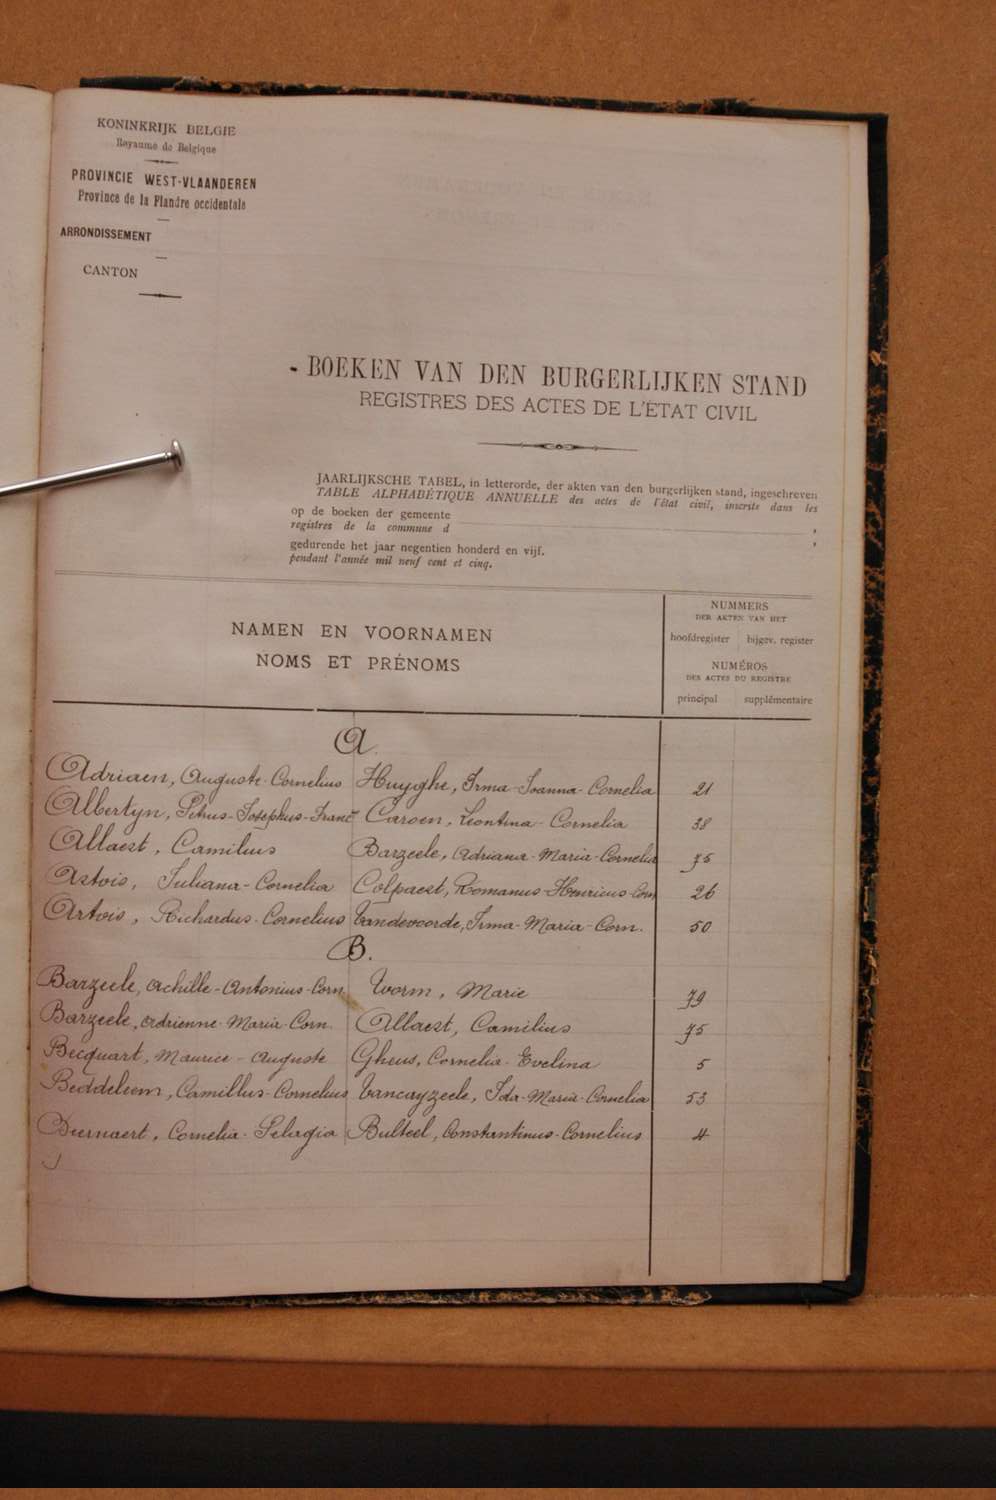 KONINKRIJK BELGIE
Royaume de Belgique
PROVINCIE WEST-VLAANDEREN
Province de la Flandre occidentale
ARRONDISSEMENT
CANTON
BOEKEN VAN DEN BURGERLIJKEN STAND
REGISTRES DES ACTES DE L'ÉTAT CIVIL
JAARLIJKSCHE TABEL, in letterorde, der akten van den burgerlijken stand, ingeschreven
TABLE ALPHABÉTIQUE ANNUELLE des actes de l'état civil, inscrits dans les
op de boeken der gemeente
registres de la commune d ,
gedurende het jaar negentien honderd en vijf. ,
pendant l'année mil neuf cent et cinq.
NAMEN EN VOORNAMEN
NOMS ET PRÉNOMS
NUMMERS
DER AKTEN VAN HET
hoofdregister bijgev. register
NUMÉROS
DES ACTES DU REGISTRE
principal supplémentaire
A.
Adriaen, Auguste-Cornelius Huyghe, Irma-Joanna-Cornelia 21
Albertyn, Petrus-Josephus-Franc Caroen, Leontina-Cornelia 38
Allaest, Camilius Barzeele, Adriana-Maria-Cornelia 75
Artois, Juliana-Cornelia Colpaest, Romanus-Henricus-Corn 26
Artois, Richardus-Cornelius Vandevoorde, Irma-Maria-Corn. 50
B.
Barzeele, Achille-Antonius-Corn. Worm, Marie 79
Barzeele, Adrienne-Maria-Corn. Allaest, Camilius 75
Becquart, Maurice-Auguste Gheus, Cornelia-Evelina 5
Beddeleem, Camillus-Cornelius Vancayzeele, Ida-Maria-Cornelia 53
Diernaert, Cornelia-Pelagia Bulteel, Constantinus-Cornelius 4